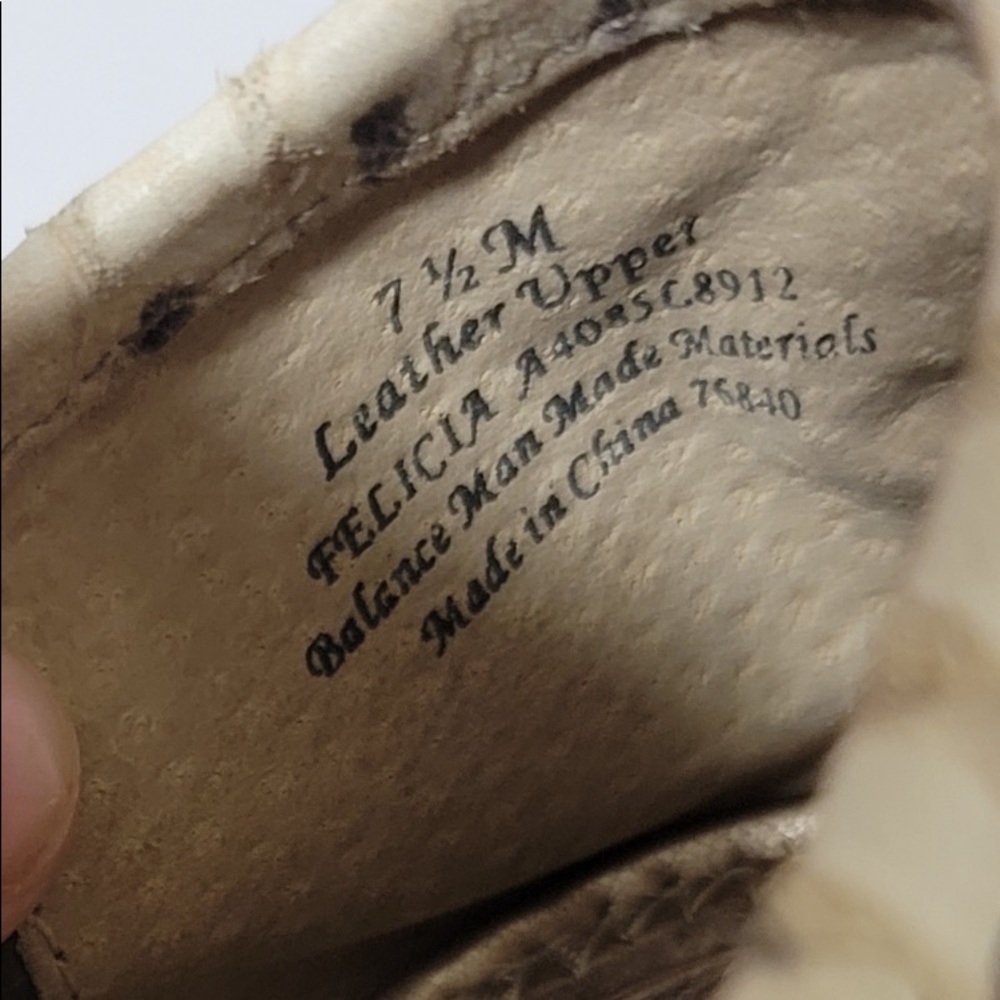 7 ½ M
Leather Upper
FELICIA A4085L8912
Balance Man Made Materials
Made in China 76840